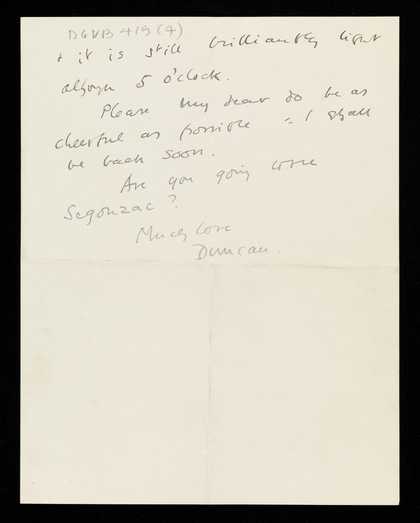 DGVB 419 (4)
& it is still brilliantly light
although 5 o'clock.
Please my dear do be as
cheerful as possible - I shall
be back soon.
Are you going
Segonzac?
Much love
Duncan.